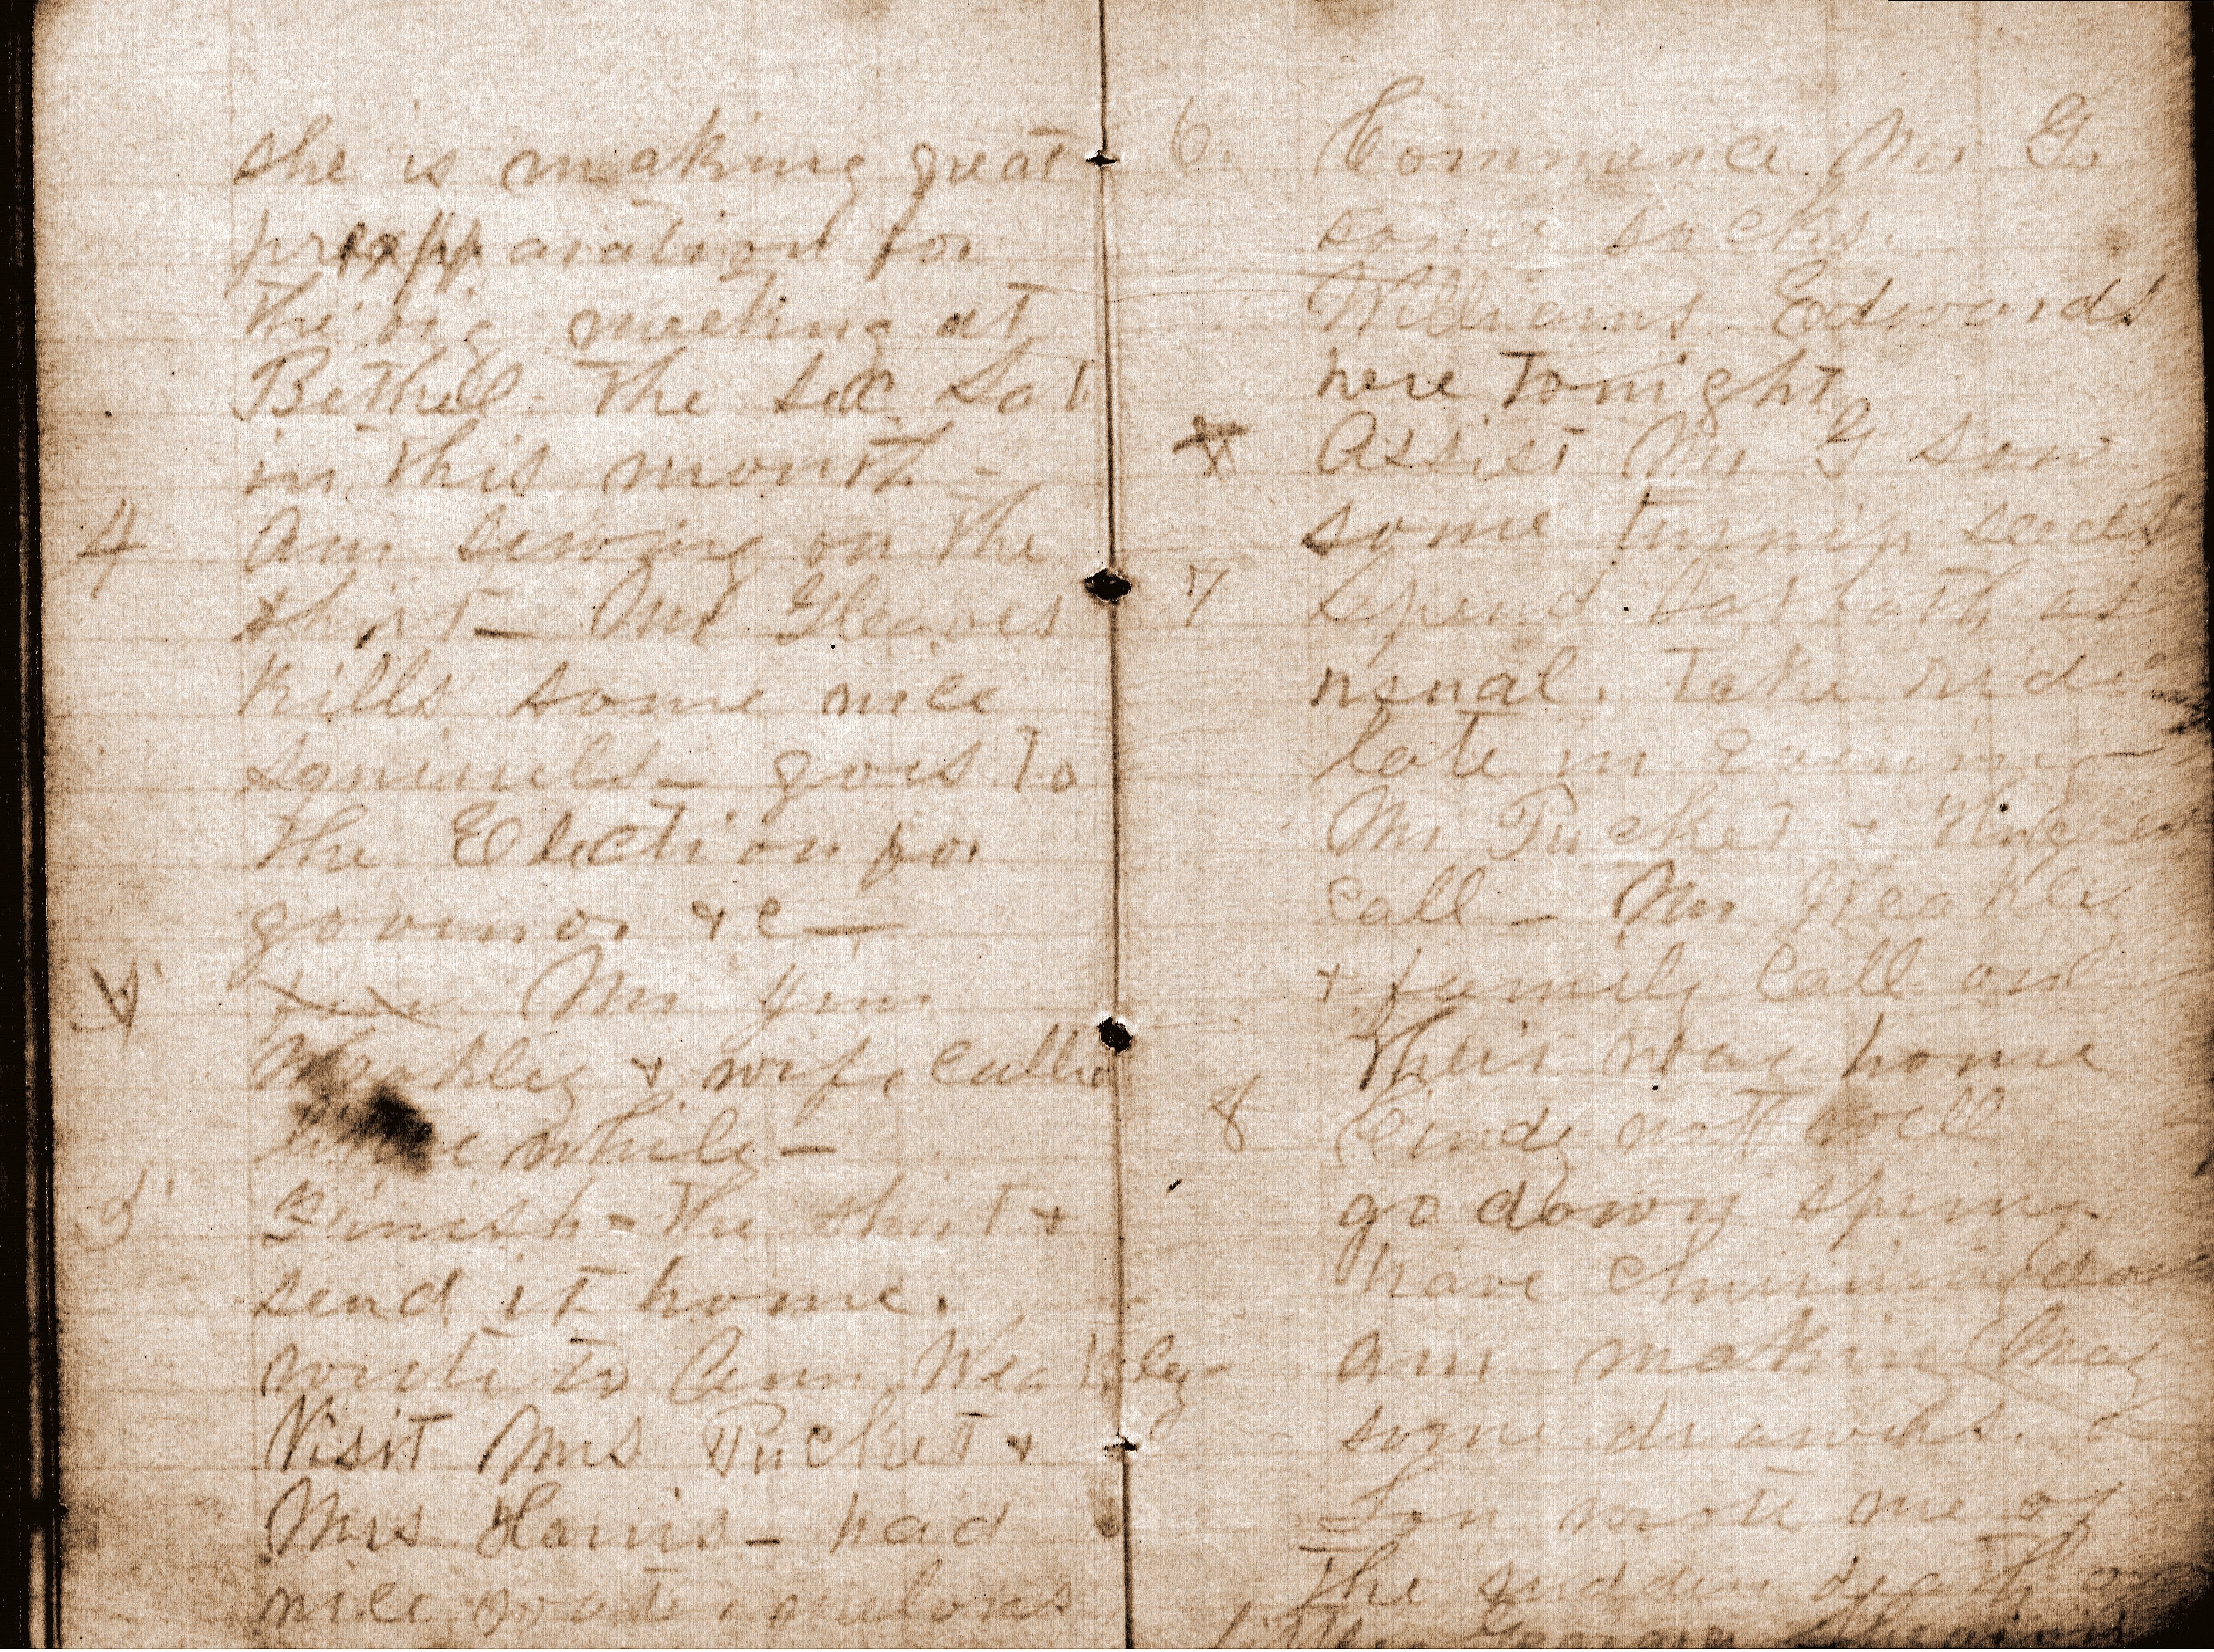 she is making great
preapparation for
the big meeting at
Bethel - the sec Sab
in this month -
4 Am sewing on the
shirt - Mr Gleaves
kills some nice
squirrels - goes to
the Election for
govenor & c —
Mr Jim
Weakley & wife called
little while -
5 Finish - the shirt &
send it home.
wrote to Ann Weakley
Visit Mrs Pucket &
Mrs Harris - had
nice water melons
6. Commance Mr G.
some socks.
Williams Edwards
here tonight
Assist Mr G sow
some turnip seeds
7 Spend Sabbath as
usual. Take ride
late in Evening
Mr Pucket &
call - Mr Weakley
& family call on
their way home
8 Cindy not well
go down spring.
have churning
am making May
some drawers.
Lou wrote me of
the sudden death of
little George